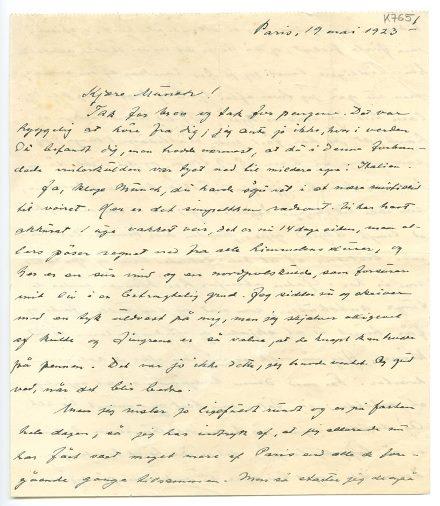 K765
Paris, 19 mai 1923
Kjære Munch!
Tak for brev og tak for pengene. Det var
hyggelig at höre fra dig; jeg ante jo ikke, hvor i verden
Du befandt dig, men trodde nærmest, at du i denne
var tyet ned til mildere egne i Italien.
Ja, kloge Munch, du havde i at være
til våiret. Her er det simpelthen rædsomt. Vi har havt
akkurat 1 uge vakkert veir, det er nu 14 dage siden, men
regnet ned fra alle himmelens, og
her er en sur vind og en nordpolskulde, som
mit liv i en betragtelig grad. Jeg sidder nu og skriver
med en tyk uldvest på mig, men jeg skjælver alligevel
af kulde og fingrene er så valne, at de knapt kan holde
på pennen. Det var jo ikke dette, jeg havde ventet. Og gud
ved, når det blir bedre.
Men jeg jo ligefuldt rundt og er på farten
hele dagen, så jeg har indtryk af, at jeg allerede nu
har fået sett meget mere af Paris end alle de for-
gående gange tilsammen. Men så starter jeg også